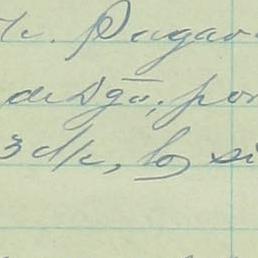 de. Pagar
de Dgo, por
3 d/c, los si